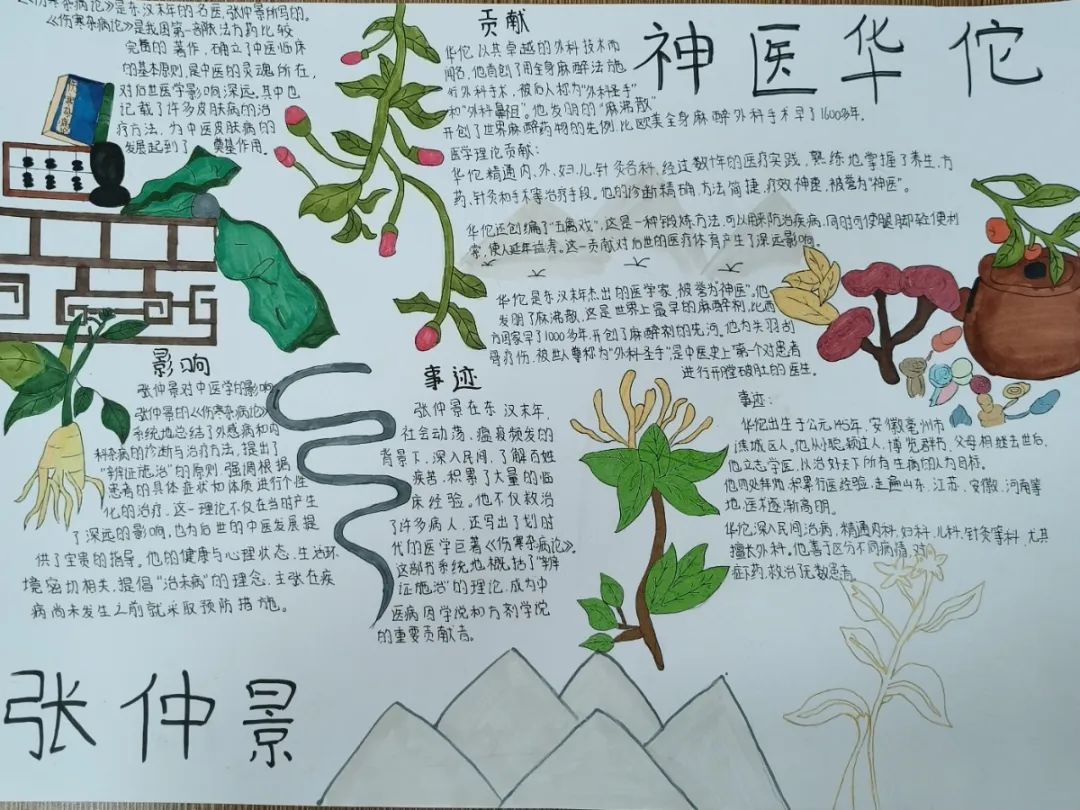 《伤寒杂病论》是东汉末年的名医,张仲景所写的。
《伤寒杂病论》是我国第一部
完备的著作,确立了中医临床
的基本原则,是中医的灵魂所在,
对后世医学影响深远。其中也
记载了许多皮肤病的治
疗方法,为中医皮肤病的
发展起到了奠基作用。
贡献
华佗,以其卓越的外科技术而
闻名。他首创了用全身麻醉法施
行外科手术,被后人称为“外科圣手”
和“外科鼻祖”。他发明的“麻沸散”
开创了世界麻醉药物的先例,比欧美全身麻醉外科手术早了1600多年。
医学理论贡献:
华佗精通内、外、妇、儿、针灸各科,经过数十年的医疗实践,熟练地掌握了养生、方
药、针灸和手术等治疗手段。他的诊断精确,方法简捷,疗效神速,被誉为“神医”。
华佗还创编了“五禽戏”,这是一种锻炼方法,可以用来防治疾病,同时可使腿脚轻便利
索,使人延年益寿。这一贡献对后世的医疗体育产生了深远影响。
神医华佗
华佗是东汉末年杰出的医学家,被誉为“神医”。他
发明了麻沸散,这是世界上最早的麻醉剂,比西
方国家早了1000多年,开创了麻醉剂的先河。他为关羽刮
骨疗伤,被世人尊称为“外科圣手”,是中医史上第一个对患者
进行开膛破肚的医生。
影响
张仲景对中医学的影响
张仲景的《伤寒杂病论》
系统地总结了外感病和内
科杂病的诊断与治疗方法,提出了
“辨证施治”的原则,强调根据
患者的具体症状和体质进行个性
化的治疗。这一理论不仅在当时产生
了深远的影响,也为后世的中医发展提
供了宝贵的指导。他的健康与心理状态、生活环
境密切相关,提倡“治未病”的理念,主张在疾
病尚未发生之前就采取预防措施。
事迹
张仲景在东汉末年,
社会动荡,瘟疫频发的
背景下,深入民间,了解百姓
疾苦,积累了大量的临
床经验。他不仅救治
了许多病人,还写出了划时
代的医学巨著《伤寒杂病论》。
这部书系统地概括了“辨
证施治”的理论,成为中
医病因学说和方剂学说
的重要贡献者。
事迹:
华佗出生于公元145年,安徽亳州市
谯城区人。他从小聪颖过人,博览群书,父母相继去世后,
他立志学医,以治好天下所有生病的人为目标。
他四处拜师,积累行医经验,走遍山东、江苏、安徽、河南等
地,医术逐渐高明。
华佗深入民间治病,精通内科、妇科、儿科、针灸等科,尤其
擅长外科。他善于区分不同病情,对
症下药,救治了无数患者。
张仲景